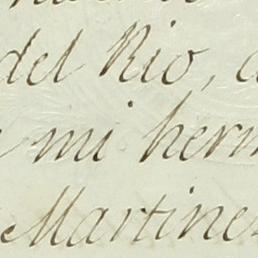 del Rio,
mi herm
Martine